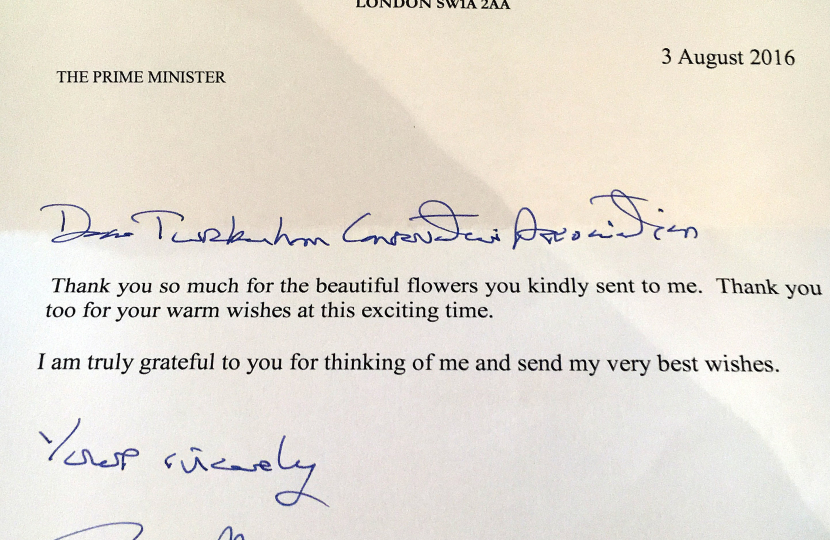 LONDON SW1A 2AA
3 August 2016
THE PRIME MINISTER
Dear Twickenham Conservative Association
Thank you so much for the beautiful flowers you kindly sent to me. Thank you
too for your warm wishes at this exciting time.
I am truly grateful to you for thinking of me and send my very best wishes.
Yours sincerely